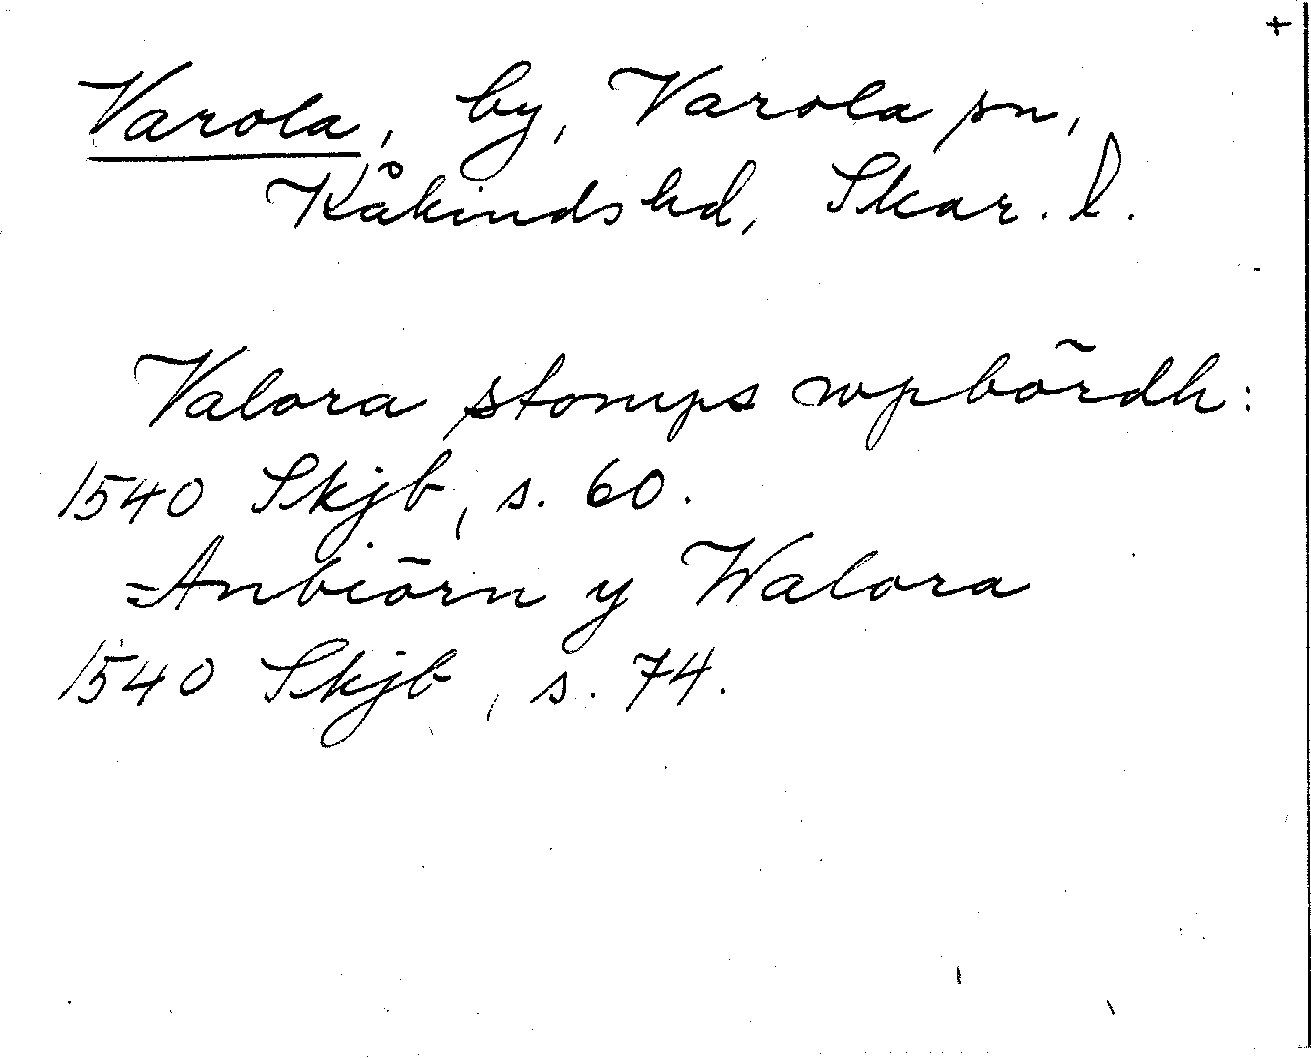 +
Varola, by, Varola sn,
Kåkinds hd, Skar. l.
Valora stomps wpbördh:
1540 Skjb, s. 60.
=Anbiörn y Walora
1540 Skjb, s. 74.